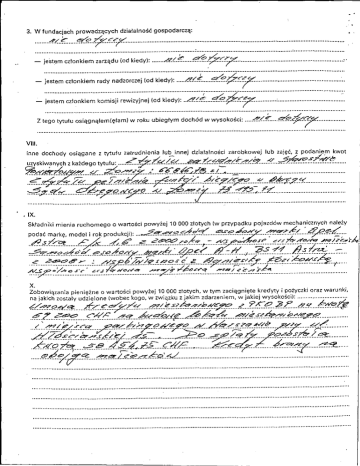 3. W fundacjach prowadzących działalność gospodarczą:
nie dotyczy
— jestem członkiem zarządu (od kiedy): nie dotyczy
— jestem członkiem rady nadzorczej (od kiedy): nie dotyczy
— jestem członkiem komisji rewizyjnej (od kiedy): nie dotyczy
Z tego tytułu osiągnąłem(ęłam) w roku ubiegłym dochód w wysokości: nie dotyczy
VIII.
Inne dochody osiągane z tytułu zatrudnienia lub innej działalności zarobkowej lub zajęć, z podaniem kwot
uzyskiwanych z każdego tytułu: Z tytułu zatrudnienia w Starostwie
Powiatowym w Łomży:
z tytułu pełnienia funkcji biegłego w
Sądu Okręgowego w Łomży
IX.
Składniki mienia ruchomego o wartości powyżej 10 000 złotych (w przypadku pojazdów mechanicznych należy
podać markę, model i rok produkcji): Samochód osobowy marki Opel
Astra 1.6 z 2000 roku - Wspólność ustawowa małżeńska
Samochód osobowy marki Opel Astra
współwłasność z
Wspólność ustawowa majątkowa małżeńska
X.
Zobowiązania pieniężne o wartości powyżej 10 000 złotych, w tym zaciągnięte kredyty i pożyczki oraz warunki,
na jakich zostały udzielone (wobec kogo, w związku z jakim zdarzeniem, w jakiej wysokości):
Umowa kredytu mieszkaniowego z PKO BP na kwotę
69 200 CHF na budowę lokalu mieszkaniowego
i miejsca parkingowego w Warszawie przy ul.
Włościańskiej Do spłaty pozostała
kwota 58 154,75 CHF Kredyt brany na
obojga małżonków